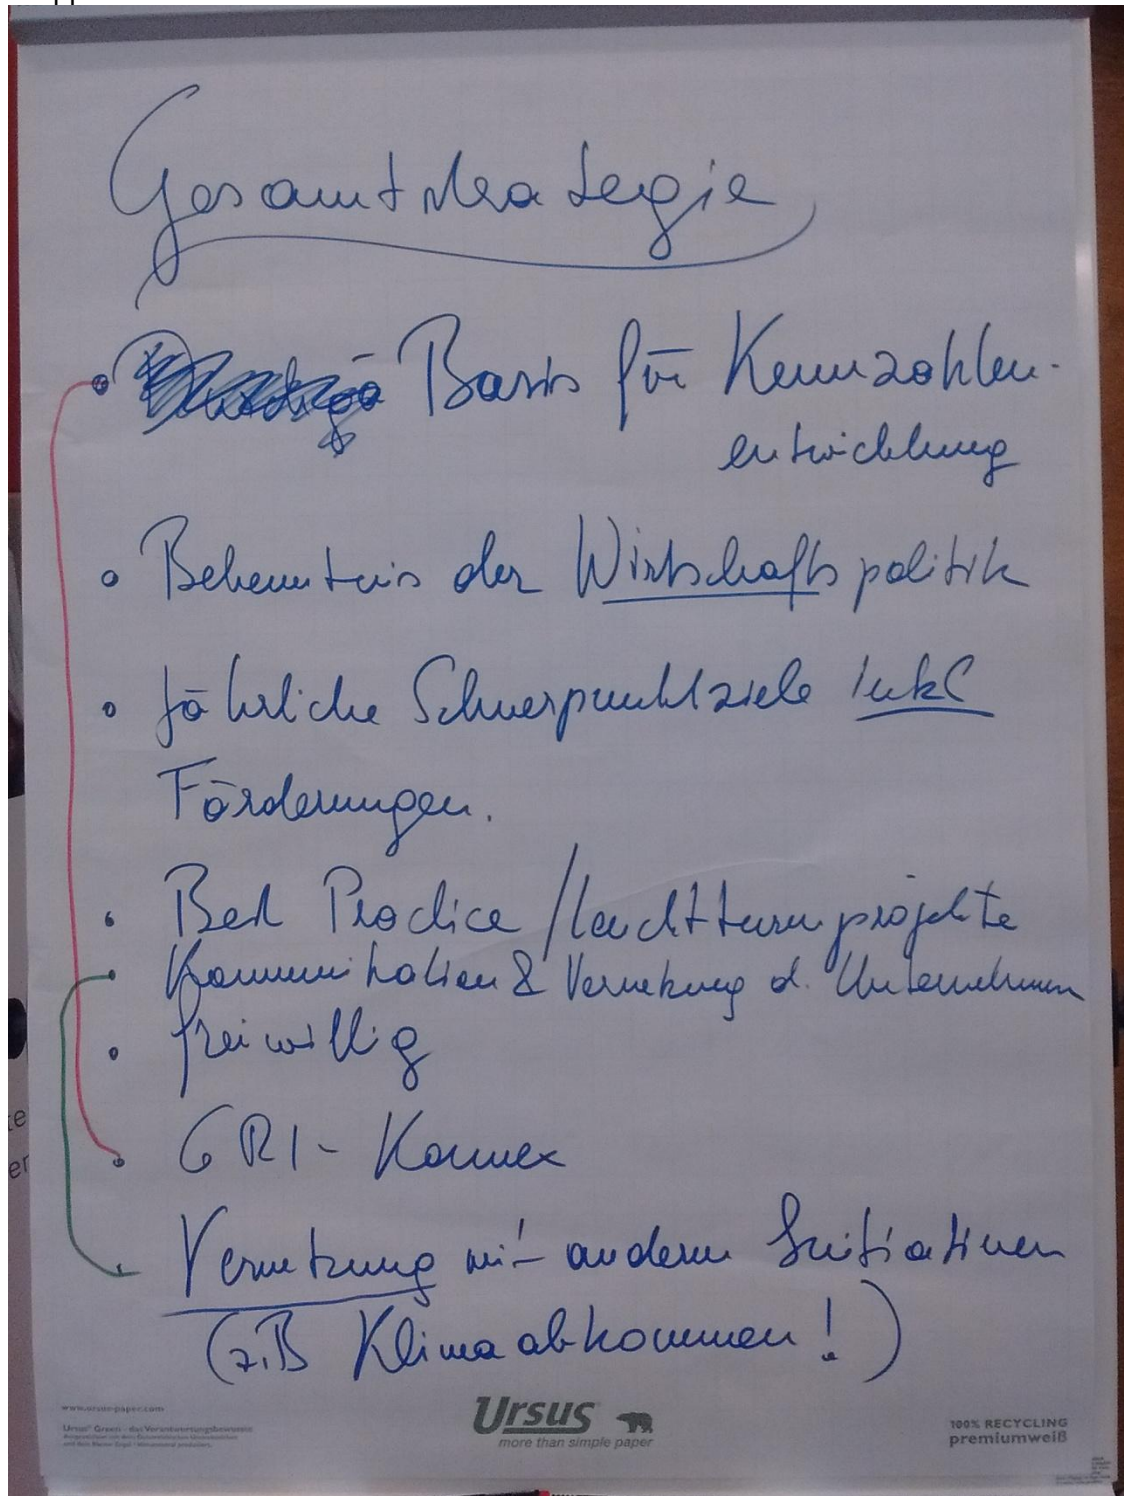 Gesamtstrategie
• Basis für Kennzahlen-
entwicklung
• Bekenntnis der Wirtschaftspolitik
• jährliche Schwerpunktziele inkl
Förderungen.
• Best Practice / Leuchtturmprojekte
• Kommunikation & Vernetzung d. Unternehmen
• freiwillig
• GRI - Konnex
- Vernetzung mit anderen Initiativen
(z.B Klimaabkommen!)
www.ursus-paper.com
Ursus
more than simple paper
100% RECYCLING
premiumweiß
Ursus Green - das Verantwortungsbewusste
te
er